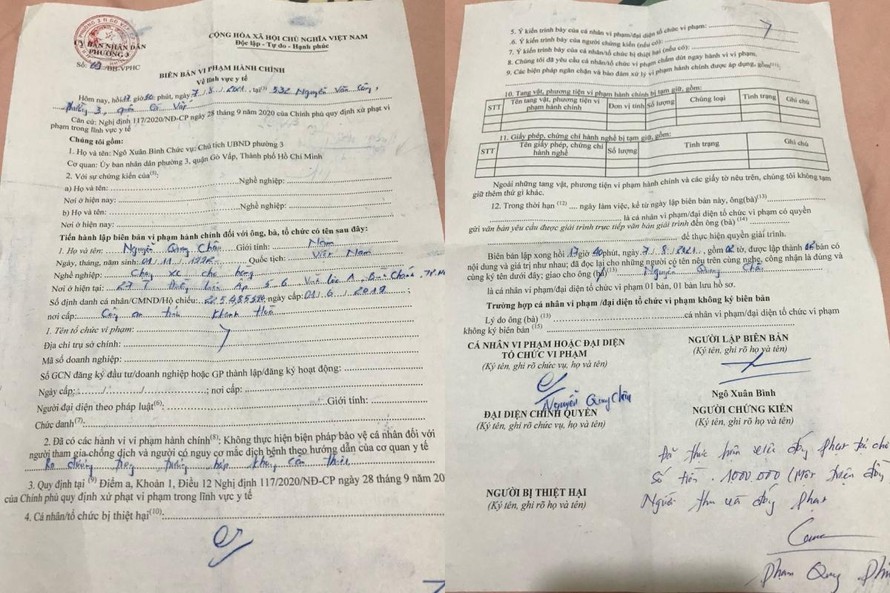 ỦY BAN NHÂN DÂN
PHƯỜNG 3
CỘNG HÒA XÃ HỘI CHỦ NGHĨA VIỆT NAM
Độc lập - Tự do - Hạnh phúc
Số: /BB-VPHC
BIÊN BẢN VI PHẠM HÀNH CHÍNH
Về lĩnh vực y tế
Hôm nay, hồi 17 giờ 30 phút, ngày 7.8.2021, tại 532 Nguyễn Văn Công,
phường 3, quận Gò Vấp
Căn cứ: Nghị định 117/2020/NĐ-CP ngày 28 tháng 9 năm 2020 của Chính phủ quy định xử phạt vi
phạm trong lĩnh vực y tế
Chúng tôi gồm:
1. Họ và tên: Ngô Xuân Bình Chức vụ: Chủ tịch UBND phường 3
Cơ quan: Ủy ban nhân dân phường 3, quận Gò Vấp, Thành phố Hồ Chí Minh
2. Với sự chứng kiến của(5):
a) Họ và tên: Nghề nghiệp:
Nơi ở hiện nay:
b) Họ và tên: Nghề nghiệp:
Nơi ở hiện nay:
Tiến hành lập biên bản vi phạm hành chính đối với ông, bà, tổ chức có tên sau đây:
1. Họ và tên: Nguyễn Quang Chân Giới tính: Nam
Ngày, tháng, năm sinh: Quốc tịch: Việt Nam
Nghề nghiệp: Chạy xe chở hàng
Nơi ở hiện tại: Ấp 5 Vĩnh Lộc A, Bình Chánh, TP.HCM
Số định danh cá nhân/CMND/Hộ chiếu: ngày cấp: 01.6.2017;
nơi cấp: Công an tỉnh Khánh Hòa
1. Tên tổ chức vi phạm:
Địa chỉ trụ sở chính:
Mã số doanh nghiệp:
Số GCN đăng ký đầu tư/doanh nghiệp hoặc GP thành lập/đăng ký hoạt động:
Ngày cấp: / / ; nơi cấp:
Người đại diện theo pháp luật(6): Giới tính:
Chức danh(7):
2. Đã có các hành vi vi phạm hành chính(8): Không thực hiện biện pháp bảo vệ cá nhân đối với
người tham gia chống dịch và người có nguy cơ mắc dịch bệnh theo hướng dẫn của cơ quan y tế
Ra đường trong trường hợp không cần thiết
3. Quy định tại (9) Điểm a, Khoản 1, Điều 12 Nghị định 117/2020/NĐ-CP ngày 28 tháng 9 năm 20
của Chính phủ quy định xử phạt vi phạm trong lĩnh vực y tế
4. Cá nhân/tổ chức bị thiệt hại(10):
5. Ý kiến trình bày của cá nhân vi phạm/đại diện tổ chức vi phạm:
6. Ý kiến trình bày của người chứng kiến (nếu có):
7. Ý kiến trình bày của cá nhân/tổ chức bị thiệt hại (nếu có):
8. Chúng tôi đã yêu cầu cá nhân/tổ chức vi phạm chấm dứt ngay hành vi vi phạm.
9. Các biện pháp ngăn chặn và bảo đảm xử lý vi phạm hành chính được áp dụng, gồm(11):
10. Tang vật, phương tiện vi phạm hành chính bị tạm giữ, gồm:
STT Tên tang vật, phương tiện vi phạm hành chính Đơn vị tính Số lượng Chủng loại Tình trạng Ghi chú
11. Giấy phép, chứng chỉ hành nghề bị tạm giữ, gồm:
STT Tên giấy phép, chứng chỉ hành nghề Số lượng Tình trạng Ghi chú
Ngoài những tang vật, phương tiện vi phạm hành chính và các giấy tờ nêu trên, chúng tôi không tạm
giữ thêm thứ gì khác.
12. Trong thời hạn (12) ... ngày làm việc, kể từ ngày lập biên bản này, ông(bà)(13)
là cá nhân vi phạm/đại diện tổ chức vi phạm có quyền
gửi văn bản yêu cầu được giải trình trực tiếp văn bản giải trình đến ông (bà) (14)
để thực hiện quyền giải trình.
Biên bản lập xong hồi 17 giờ 40 phút, ngày 7.8.2021, gồm 02 tờ, được lập thành bản có
nội dung và giá trị như nhau; đã đọc lại cho những người có tên nêu trên cùng nghe, công nhận là đúng và
cùng ký tên dưới đây; giao cho ông (bà) Nguyễn Quang Chân
là cá nhân vi phạm/đại diện tổ chức vi phạm 01 bản, 01 bản lưu hồ sơ.
Trường hợp cá nhân vi phạm /đại diện tổ chức vi phạm không ký biên bản
Lý do ông (bà) (13) cá nhân vi phạm/đại diện tổ chức vi phạm
không ký biên bản (15)
CÁ NHÂN VI PHẠM HOẶC ĐẠI DIỆN
TỔ CHỨC VI PHẠM
(Ký tên, ghi rõ chức vụ, họ và tên)
Nguyễn Quang Chân
NGƯỜI LẬP BIÊN BẢN
(Ký tên, ghi rõ họ và tên)
Ngô Xuân Bình
ĐẠI DIỆN CHÍNH QUYỀN
(Ký tên, ghi rõ chức vụ, họ và tên)
NGƯỜI CHỨNG KIẾN
(Ký tên, ghi rõ họ và tên)
Đã thực hiện việc đóng phạt tại chỗ
Số tiền: 1.000.000 (Một triệu đồng
Người thu đóng phạt
NGƯỜI BỊ THIỆT HẠI
(Ký tên, ghi rõ họ và tên)
Phạm Quang